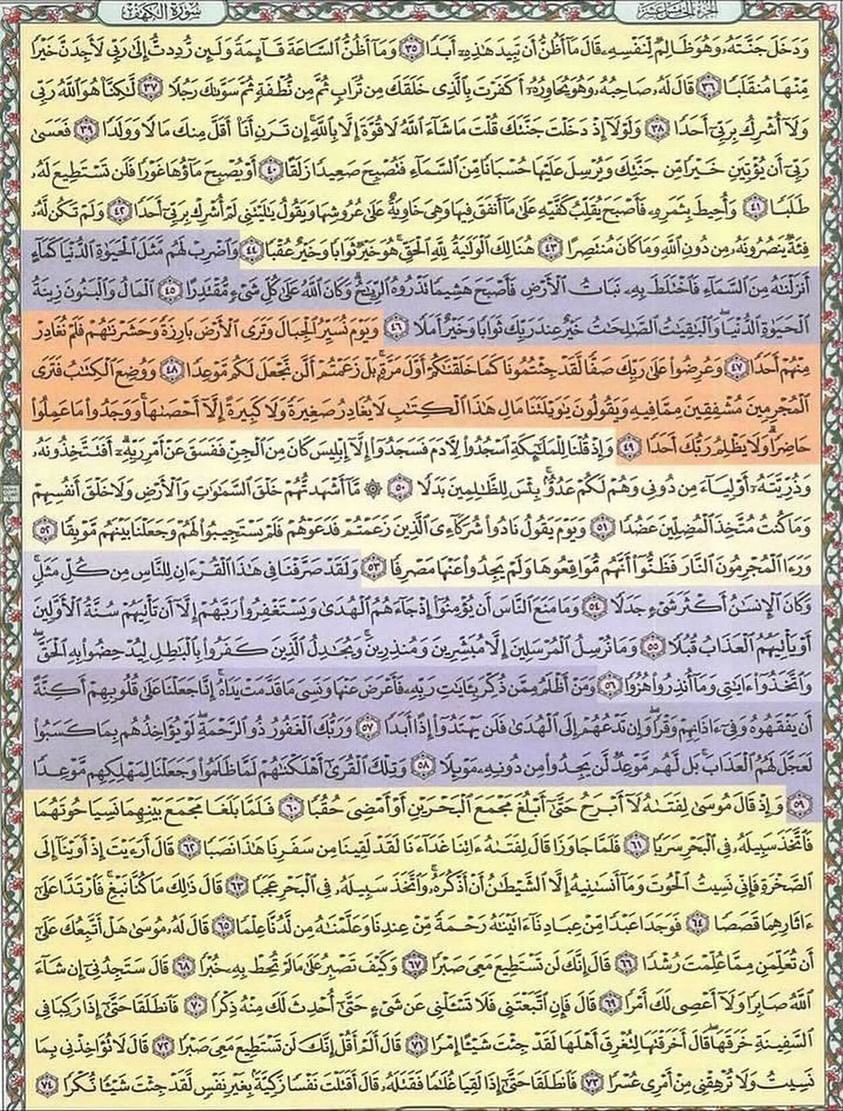 الجزء الخامس عشر
سورة الكهف
وَدَخَلَ جَنَّتَهُۥ وَهُوَ ظَالِمٌ لِّنَفْسِهِۦ قَالَ مَآ أَظُنُّ أَن تَبِيدَ هَٰذِهِۦٓ أَبَدًا ٣٥ وَمَآ أَظُنُّ ٱلسَّاعَةَ قَآئِمَةً وَلَئِن رُّدِدتُّ إِلَىٰ رَبِّى لَأَجِدَنَّ خَيْرًا
مِّنْهَا مُنقَلَبًا ٣٦ قَالَ لَهُۥ صَاحِبُهُۥ وَهُوَ يُحَاوِرُهُۥٓ أَكَفَرْتَ بِٱلَّذِى خَلَقَكَ مِن تُرَابٍ ثُمَّ مِن نُّطْفَةٍ ثُمَّ سَوَّىٰكَ رَجُلًا ٣٧ لَّٰكِنَّا۠ هُوَ ٱللَّهُ رَبِّى
وَلَآ أُشْرِكُ بِرَبِّىٓ أَحَدًا ٣٨ وَلَوْلَآ إِذْ دَخَلْتَ جَنَّتَكَ قُلْتَ مَا شَآءَ ٱللَّهُ لَا قُوَّةَ إِلَّا بِٱللَّهِ ۚ إِن تَرَنِ أَنَا۠ أَقَلَّ مِنكَ مَالًا وَوَلَدًا ٣٩ فَعَسَىٰ
رَبِّىٓ أَن يُؤْتِيَنِ خَيْرًا مِّن جَنَّتِكَ وَيُرْسِلَ عَلَيْهَا حُسْبَانًا مِّنَ ٱلسَّمَآءِ فَتُصْبِحَ صَعِيدًا زَلَقًا ٤٠ أَوْ يُصْبِحَ مَآؤُهَا غَوْرًا فَلَن تَسْتَطِيعَ لَهُۥ
طَلَبًا ٤١ وَأُحِيطَ بِثَمَرِهِۦ فَأَصْبَحَ يُقَلِّبُ كَفَّيْهِ عَلَىٰ مَآ أَنفَقَ فِيهَا وَهِىَ خَاوِيَةٌ عَلَىٰ عُرُوشِهَا وَيَقُولُ يَٰلَيْتَنِى لَمْ أُشْرِكْ بِرَبِّىٓ أَحَدًا ٤٢ وَلَمْ تَكُن لَّهُۥ
فِئَةٌ يَنصُرُونَهُۥ مِن دُونِ ٱللَّهِ وَمَا كَانَ مُنتَصِرًا ٤٣ هُنَالِكَ ٱلْوَلَٰيَةُ لِلَّهِ ٱلْحَقِّ ۚ هُوَ خَيْرٌ ثَوَابًا وَخَيْرٌ عُقْبًا ٤٤ وَٱضْرِبْ لَهُم مَّثَلَ ٱلْحَيَوٰةِ ٱلدُّنْيَا كَمَآءٍ
أَنزَلْنَٰهُ مِنَ ٱلسَّمَآءِ فَٱخْتَلَطَ بِهِۦ نَبَاتُ ٱلْأَرْضِ فَأَصْبَحَ هَشِيمًا تَذْرُوهُ ٱلرِّيَٰحُ ۗ وَكَانَ ٱللَّهُ عَلَىٰ كُلِّ شَىْءٍ مُّقْتَدِرًا ٤٥ ٱلْمَالُ وَٱلْبَنُونَ زِينَةُ
ٱلْحَيَوٰةِ ٱلدُّنْيَا ۖ وَٱلْبَٰقِيَٰتُ ٱلصَّٰلِحَٰتُ خَيْرٌ عِندَ رَبِّكَ ثَوَابًا وَخَيْرٌ أَمَلًا ٤٦ وَيَوْمَ نُسَيِّرُ ٱلْجِبَالَ وَتَرَى ٱلْأَرْضَ بَارِزَةً وَحَشَرْنَٰهُمْ فَلَمْ نُغَادِرْ
مِنْهُمْ أَحَدًا ٤٧ وَعُرِضُوا۟ عَلَىٰ رَبِّكَ صَفًّا لَّقَدْ جِئْتُمُونَا كَمَا خَلَقْنَٰكُمْ أَوَّلَ مَرَّةٍۭ ۚ بَلْ زَعَمْتُمْ أَلَّن نَّجْعَلَ لَكُم مَّوْعِدًا ٤٨ وَوُضِعَ ٱلْكِتَٰبُ فَتَرَى
ٱلْمُجْرِمِينَ مُشْفِقِينَ مِمَّا فِيهِ وَيَقُولُونَ يَٰوَيْلَتَنَا مَالِ هَٰذَا ٱلْكِتَٰبِ لَا يُغَادِرُ صَغِيرَةً وَلَا كَبِيرَةً إِلَّآ أَحْصَىٰهَا ۚ وَوَجَدُوا۟ مَا عَمِلُوا۟
حَاضِرًا ۗ وَلَا يَظْلِمُ رَبُّكَ أَحَدًا ٤٩ وَإِذْ قُلْنَا لِلْمَلَٰٓئِكَةِ ٱسْجُدُوا۟ لِءَادَمَ فَسَجَدُوٓا۟ إِلَّآ إِبْلِيسَ كَانَ مِنَ ٱلْجِنِّ فَفَسَقَ عَنْ أَمْرِ رَبِّهِۦٓ ۗ أَفَتَتَّخِذُونَهُۥ
وَذُرِّيَّتَهُۥٓ أَوْلِيَآءَ مِن دُونِى وَهُمْ لَكُمْ عَدُوٌّۢ ۚ بِئْسَ لِلظَّٰلِمِينَ بَدَلًا ٥٠ ۞ مَّآ أَشْهَدتُّهُمْ خَلْقَ ٱلسَّمَٰوَٰتِ وَٱلْأَرْضِ وَلَا خَلْقَ أَنفُسِهِمْ
وَمَا كُنتُ مُتَّخِذَ ٱلْمُضِلِّينَ عَضُدًا ٥١ وَيَوْمَ يَقُولُ نَادُوا۟ شُرَكَآءِىَ ٱلَّذِينَ زَعَمْتُمْ فَدَعَوْهُمْ فَلَمْ يَسْتَجِيبُوا۟ لَهُمْ وَجَعَلْنَا بَيْنَهُم مَّوْبِقًا ٥٢
وَرَءَا ٱلْمُجْرِمُونَ ٱلنَّارَ فَظَنُّوٓا۟ أَنَّهُم مُّوَاقِعُوهَا وَلَمْ يَجِدُوا۟ عَنْهَا مَصْرِفًا ٥٣ وَلَقَدْ صَرَّفْنَا فِى هَٰذَا ٱلْقُرْءَانِ لِلنَّاسِ مِن كُلِّ مَثَلٍ ۚ
وَكَانَ ٱلْإِنسَٰنُ أَكْثَرَ شَىْءٍ جَدَلًا ٥٤ وَمَا مَنَعَ ٱلنَّاسَ أَن يُؤْمِنُوٓا۟ إِذْ جَآءَهُمُ ٱلْهُدَىٰ وَيَسْتَغْفِرُوا۟ رَبَّهُمْ إِلَّآ أَن تَأْتِيَهُمْ سُنَّةُ ٱلْأَوَّلِينَ
أَوْ يَأْتِيَهُمُ ٱلْعَذَابُ قُبُلًا ٥٥ وَمَا نُرْسِلُ ٱلْمُرْسَلِينَ إِلَّا مُبَشِّرِينَ وَمُنذِرِينَ ۚ وَيُجَٰدِلُ ٱلَّذِينَ كَفَرُوا۟ بِٱلْبَٰطِلِ لِيُدْحِضُوا۟ بِهِ ٱلْحَقَّ ۖ
وَٱتَّخَذُوٓا۟ ءَايَٰتِى وَمَآ أُنذِرُوا۟ هُزُوًا ٥٦ وَمَنْ أَظْلَمُ مِمَّن ذُكِّرَ بِـَٔايَٰتِ رَبِّهِۦ فَأَعْرَضَ عَنْهَا وَنَسِىَ مَا قَدَّمَتْ يَدَاهُ ۚ إِنَّا جَعَلْنَا عَلَىٰ قُلُوبِهِمْ أَكِنَّةً
أَن يَفْقَهُوهُ وَفِىٓ ءَاذَانِهِمْ وَقْرًا ۖ وَإِن تَدْعُهُمْ إِلَى ٱلْهُدَىٰ فَلَن يَهْتَدُوٓا۟ إِذًا أَبَدًا ٥٧ وَرَبُّكَ ٱلْغَفُورُ ذُو ٱلرَّحْمَةِ ۖ لَوْ يُؤَاخِذُهُم بِمَا كَسَبُوا۟
لَعَجَّلَ لَهُمُ ٱلْعَذَابَ ۚ بَل لَّهُم مَّوْعِدٌ لَّن يَجِدُوا۟ مِن دُونِهِۦ مَوْئِلًا ٥٨ وَتِلْكَ ٱلْقُرَىٰٓ أَهْلَكْنَٰهُمْ لَمَّا ظَلَمُوا۟ وَجَعَلْنَا لِمَهْلِكِهِم مَّوْعِدًا
٥٩ وَإِذْ قَالَ مُوسَىٰ لِفَتَىٰهُ لَآ أَبْرَحُ حَتَّىٰٓ أَبْلُغَ مَجْمَعَ ٱلْبَحْرَيْنِ أَوْ أَمْضِىَ حُقُبًا ٦٠ فَلَمَّا بَلَغَا مَجْمَعَ بَيْنِهِمَا نَسِيَا حُوتَهُمَا
فَٱتَّخَذَ سَبِيلَهُۥ فِى ٱلْبَحْرِ سَرَبًا ٦١ فَلَمَّا جَاوَزَا قَالَ لِفَتَىٰهُ ءَاتِنَا غَدَآءَنَا لَقَدْ لَقِينَا مِن سَفَرِنَا هَٰذَا نَصَبًا ٦٢ قَالَ أَرَءَيْتَ إِذْ أَوَيْنَآ إِلَى
ٱلصَّخْرَةِ فَإِنِّى نَسِيتُ ٱلْحُوتَ وَمَآ أَنسَىٰنِيهُ إِلَّا ٱلشَّيْطَٰنُ أَنْ أَذْكُرَهُۥ ۚ وَٱتَّخَذَ سَبِيلَهُۥ فِى ٱلْبَحْرِ عَجَبًا ٦٣ قَالَ ذَٰلِكَ مَا كُنَّا نَبْغِ ۚ فَٱرْتَدَّا عَلَىٰٓ
ءَاثَارِهِمَا قَصَصًا ٦٤ فَوَجَدَا عَبْدًا مِّنْ عِبَادِنَآ ءَاتَيْنَٰهُ رَحْمَةً مِّنْ عِندِنَا وَعَلَّمْنَٰهُ مِن لَّدُنَّا عِلْمًا ٦٥ قَالَ لَهُۥ مُوسَىٰ هَلْ أَتَّبِعُكَ عَلَىٰٓ
أَن تُعَلِّمَنِ مِمَّا عُلِّمْتَ رُشْدًا ٦٦ قَالَ إِنَّكَ لَن تَسْتَطِيعَ مَعِىَ صَبْرًا ٦٧ وَكَيْفَ تَصْبِرُ عَلَىٰ مَا لَمْ تُحِطْ بِهِۦ خُبْرًا ٦٨ قَالَ سَتَجِدُنِىٓ إِن شَآءَ
ٱللَّهُ صَابِرًا وَلَآ أَعْصِى لَكَ أَمْرًا ٦٩ قَالَ فَإِنِ ٱتَّبَعْتَنِى فَلَا تَسْـَٔلْنِى عَن شَىْءٍ حَتَّىٰٓ أُحْدِثَ لَكَ مِنْهُ ذِكْرًا ٧٠ فَٱنطَلَقَا حَتَّىٰٓ إِذَا رَكِبَا فِى
ٱلسَّفِينَةِ خَرَقَهَا ۖ قَالَ أَخَرَقْتَهَا لِتُغْرِقَ أَهْلَهَا لَقَدْ جِئْتَ شَيْـًٔا إِمْرًا ٧١ قَالَ أَلَمْ أَقُلْ إِنَّكَ لَن تَسْتَطِيعَ مَعِىَ صَبْرًا ٧٢ قَالَ لَا تُؤَاخِذْنِى بِمَا
نَسِيتُ وَلَا تُرْهِقْنِى مِنْ أَمْرِى عُسْرًا ٧٣ فَٱنطَلَقَا حَتَّىٰٓ إِذَا لَقِيَا غُلَٰمًا فَقَتَلَهُۥ قَالَ أَقَتَلْتَ نَفْسًا زَكِيَّةًۢ بِغَيْرِ نَفْسٍ لَّقَدْ جِئْتَ شَيْـًٔا نُّكْرًا ٧٤